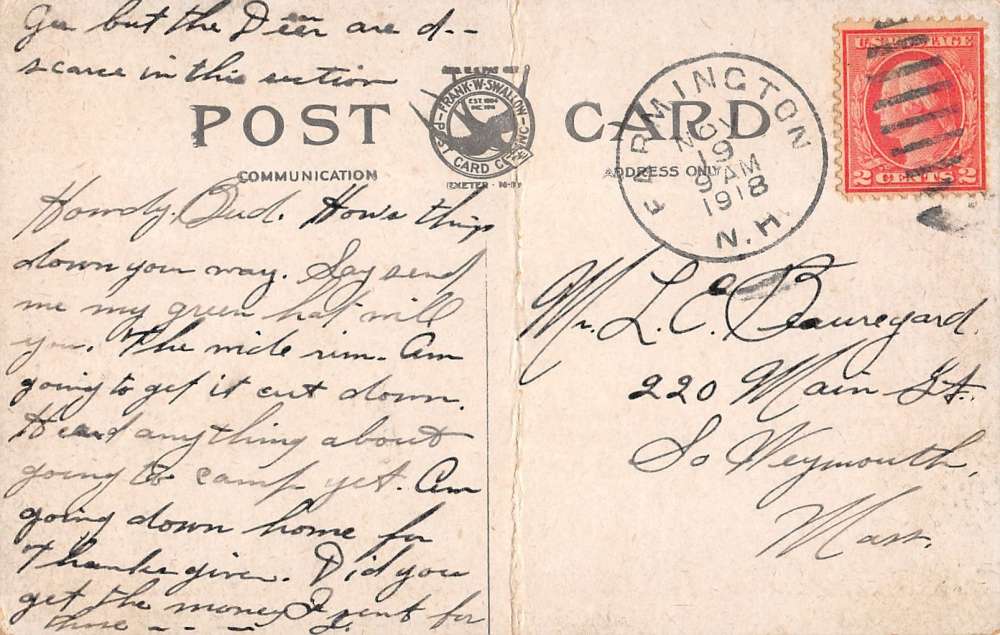 Gee but the Deer are d--
scarce in this section
POST CARD
FRANK·W·SWALLOW
EST. 1884
INC. 1911
POST CARD CO. INC
EXETER
COMMUNICATION
ADDRESS ONLY
FARMINGTON
NOV
19
9 AM
1918
N.H.
U.S. POSTAGE
2 CENTS 2
Howdy. Bud. Hows things
down your way. Say send
me my green hat will
you. The wide rim. Am
going to get it cut down.
Heard anything about
going to camp yet. Am
going down home for
Thanksgiven. Did you
get the money I sent for
Mr. L. C. Beauregard.
220 Main St.
So Weymouth,
Mass.